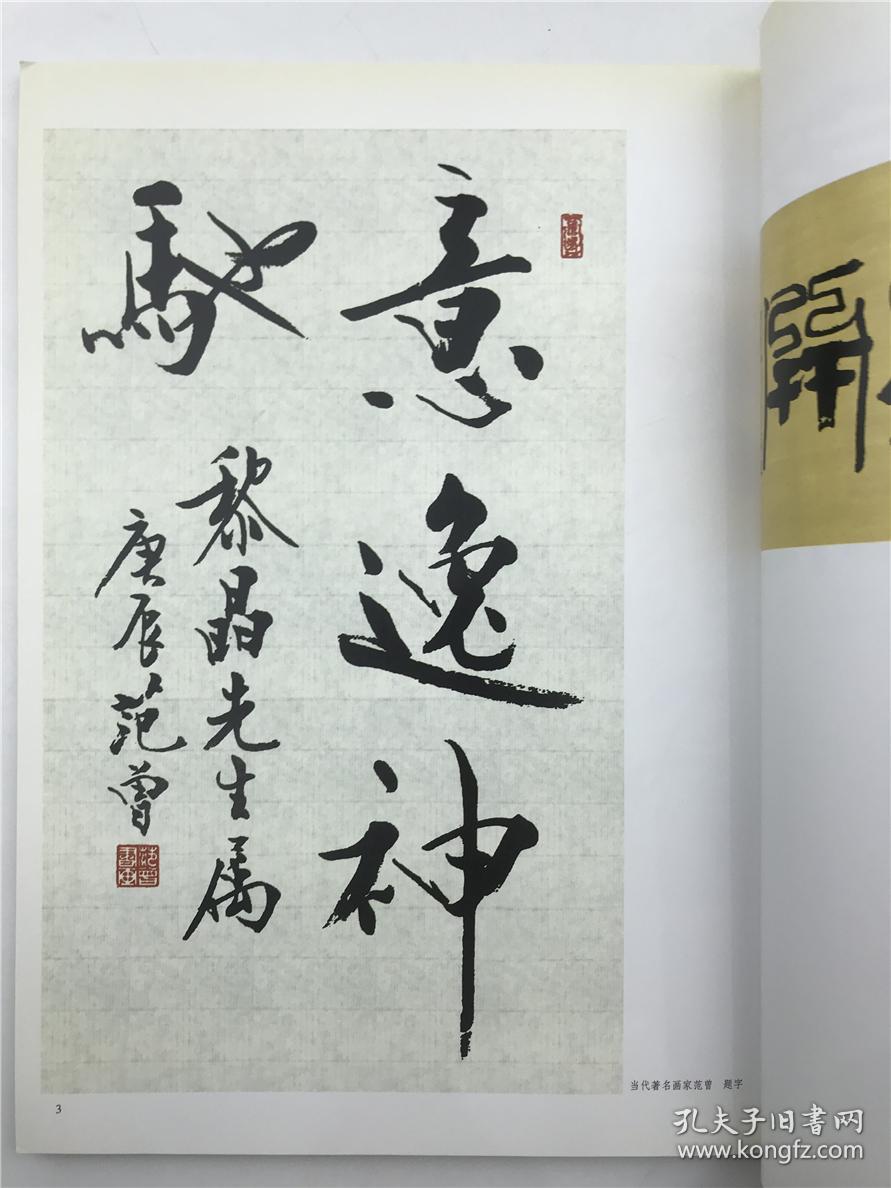 意逸神
馳
黎晶先生属
庚辰范曾
当代著名画家范曾 题字
3
孔夫子旧书网
www.kongfz.com